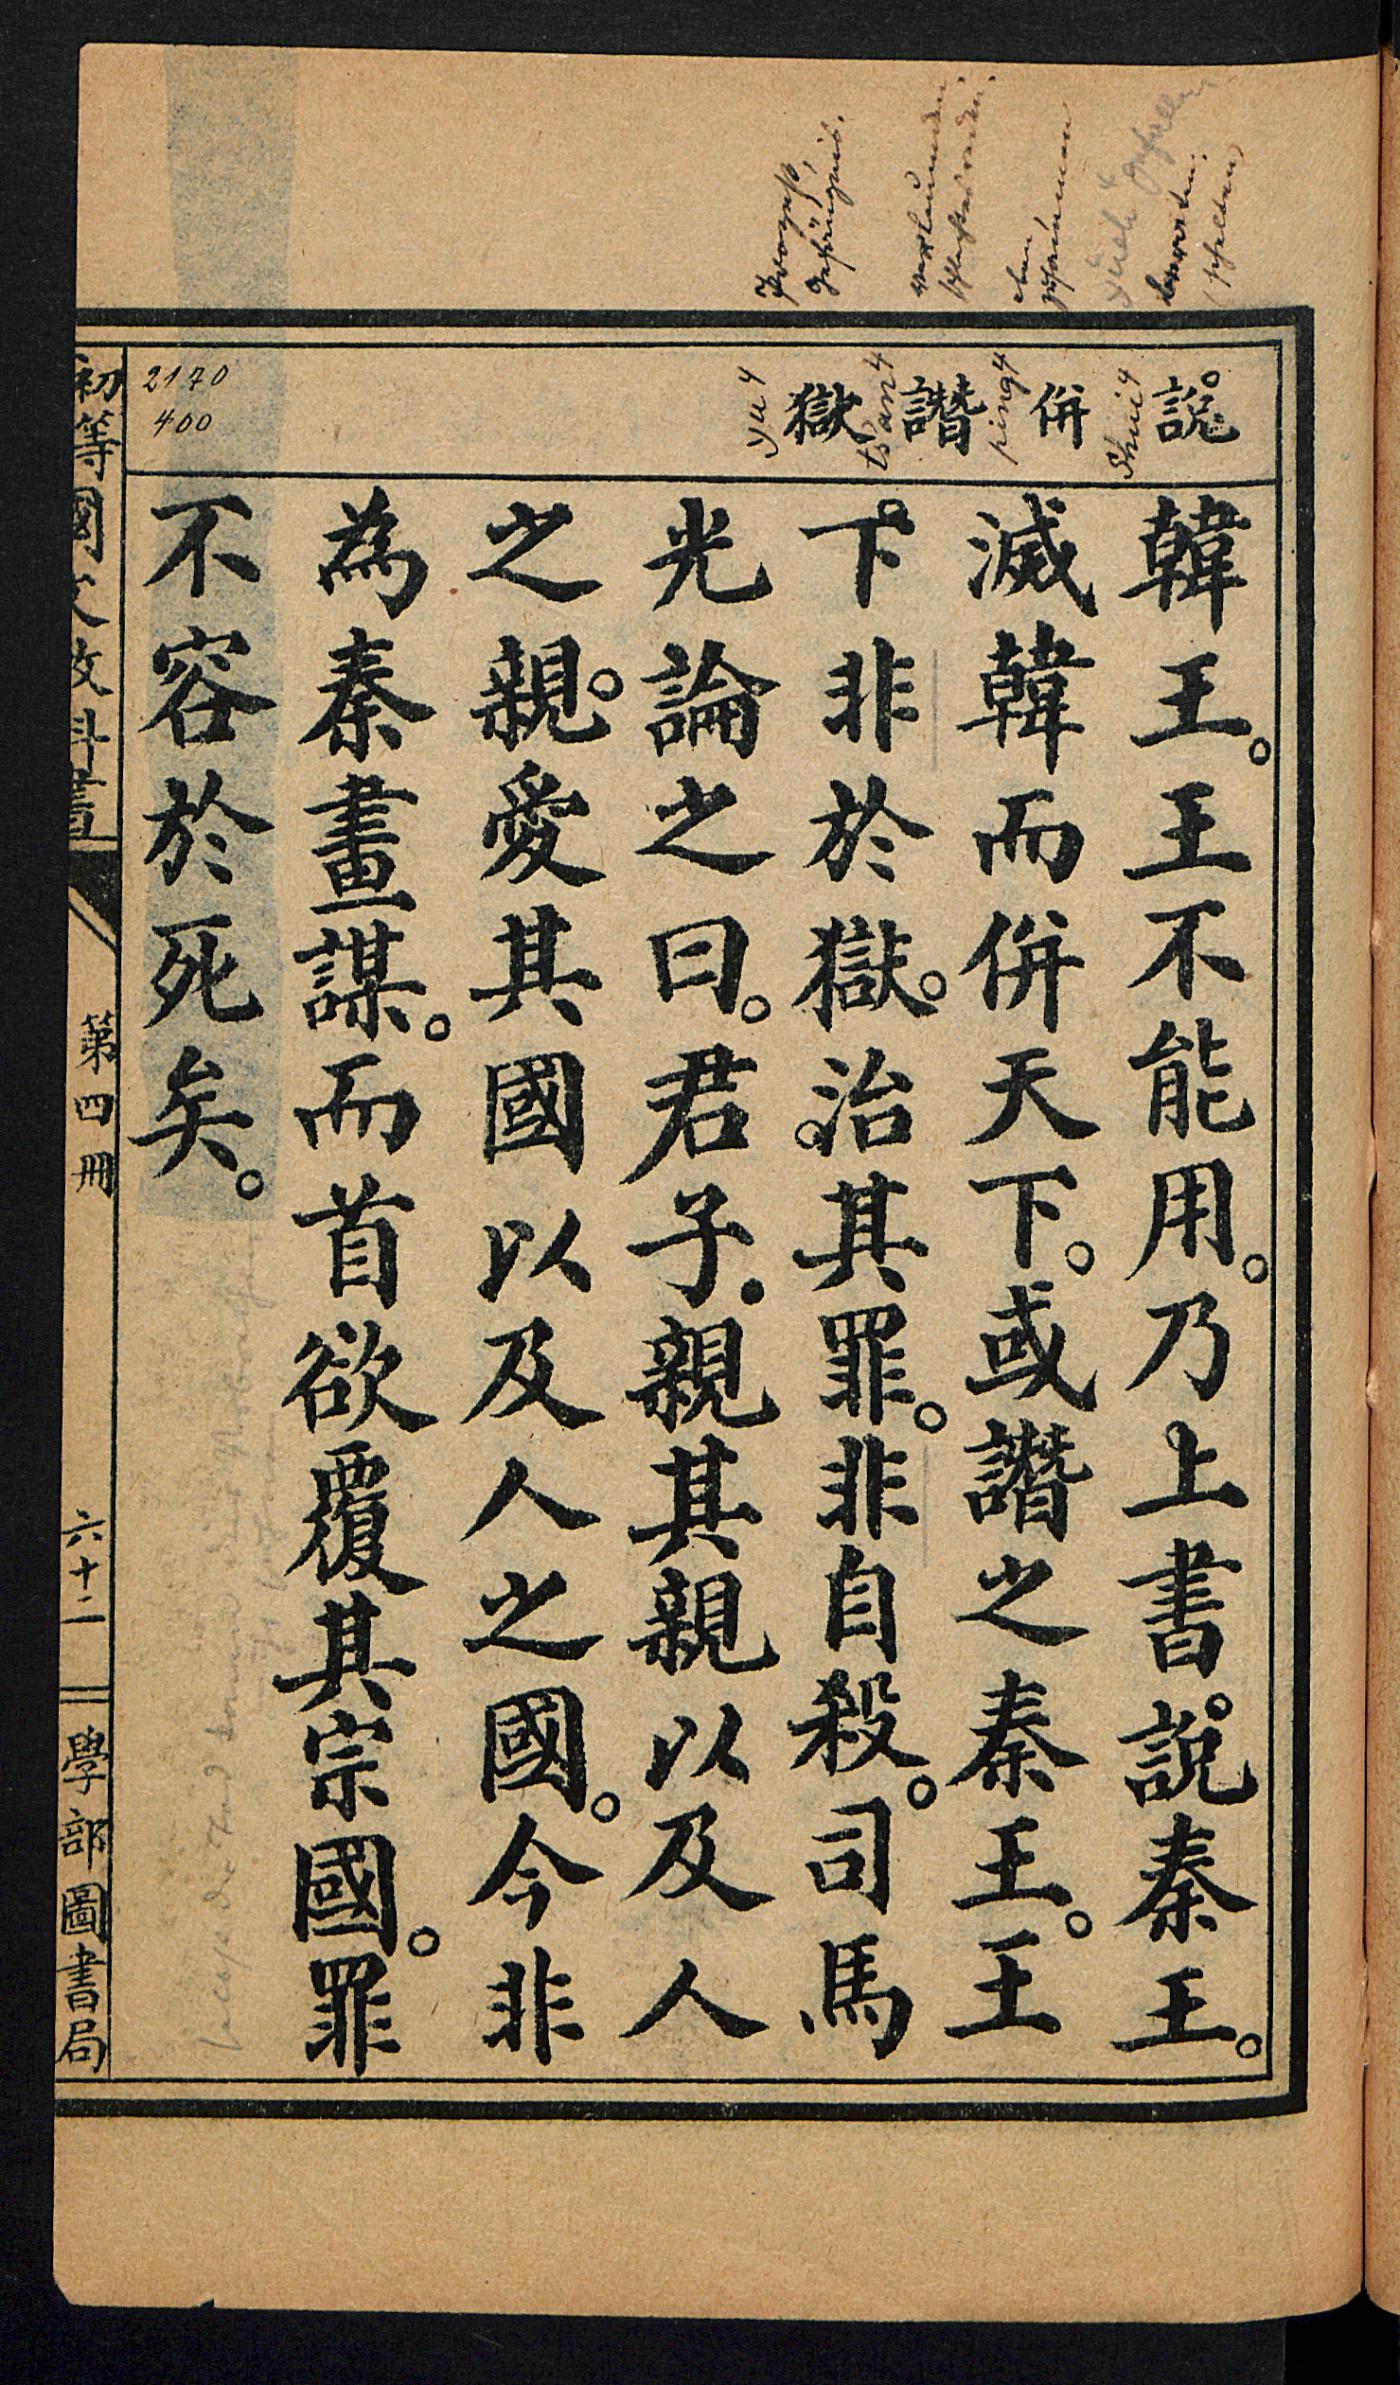 說 併 譖 獄
shui4
ping4
tsan4
yü4
2170
400
韓王。王不能用。乃上書。說秦王。
滅韓而併天下。或譖之秦王。王
下非於獄。治其罪。非自殺。司馬
光論之曰。君子.親其親以及人
之親。愛其國以及人之國。今非
為秦畫謀。而首欲覆其宗國。罪
不容於死矣。
初等國文教科書
第四冊
六十二
學部圖書局